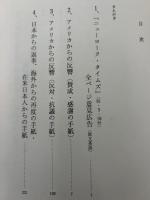 目次
まえがき
1、『ニューヨーク・タイムズ』
全ページ意見広告
2、アメリカからの反響（賛成・感謝の手紙）
3、アメリカからの反響（反対・抗議の手紙）
4、日本からの返事、海外からの再度の手紙・
在米日本人からの手紙